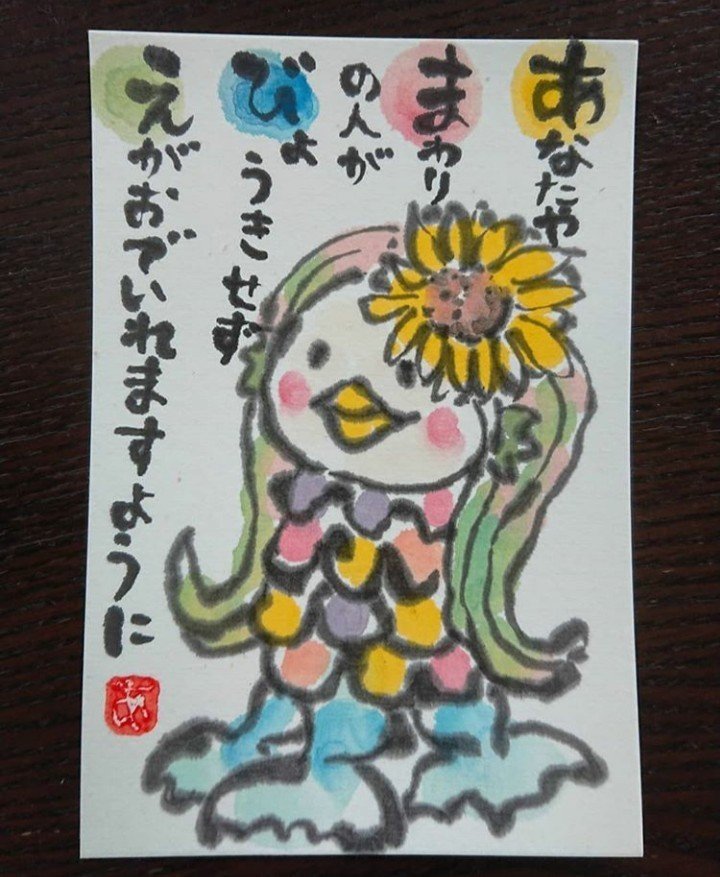 あなたや
まわり
の人が
びょ
うきせず
えがおでいれますように